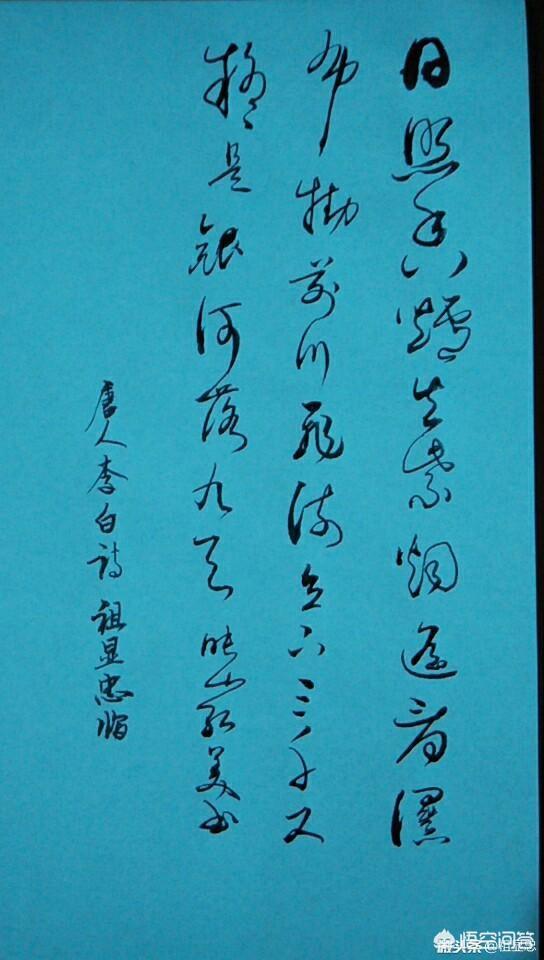 日照香炉生紫烟遥看瀑
布挂前川飞流直下三千尺
疑是银河落九天 映山红美书
唐人李白诗 祖显忠
悟空问答
头条@祖显忠